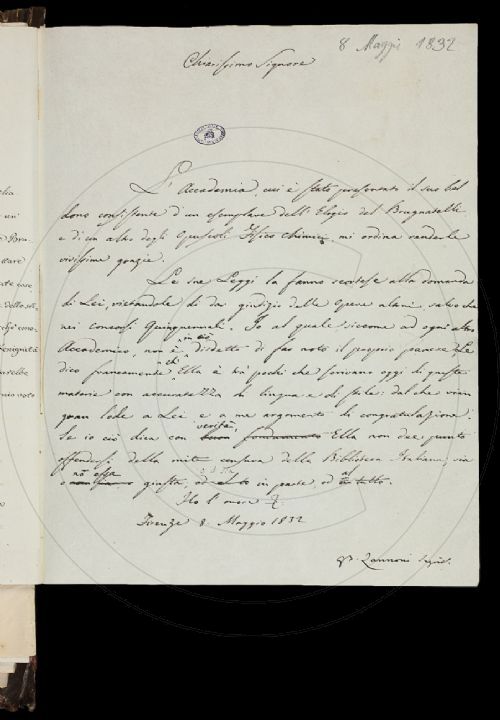 8 Maggio 1832
Chiarissimo Signore
L'Accademia, cui è stato presentato il suo bel
dono consistente d'un esemplare dell'Elogio del Brugnatelli
e di un altro degli Opuscoli Fisico Chimici, mi ordina renderle
vivissime grazie.
Le sue Leggi la fanno scortese alla domanda
di Lei, vietandole di dar giudizio delle Opere altrui, salvo che
nei concorsi Quinquennali. Io al quale siccome ad ogni altro
Accademico, non è disdetto di far noto il proprio parere, Le
dico francamente ch' Ella è tra' pochi che scrivano oggi di queste
materie con accuratezza di lingua e di stile: dal che viene
gran lode a Lei e a me argomento di congratulazione.
Se io ciò dico con buon fondamento verità, Ella non dee punto
offendersi della mite censura della Biblioteca Italiana, sia
o non essa giusta, od in parte, od al tutto.
Ho l'onore
Firenze 8 Maggio 1832
Zannoni Segret.